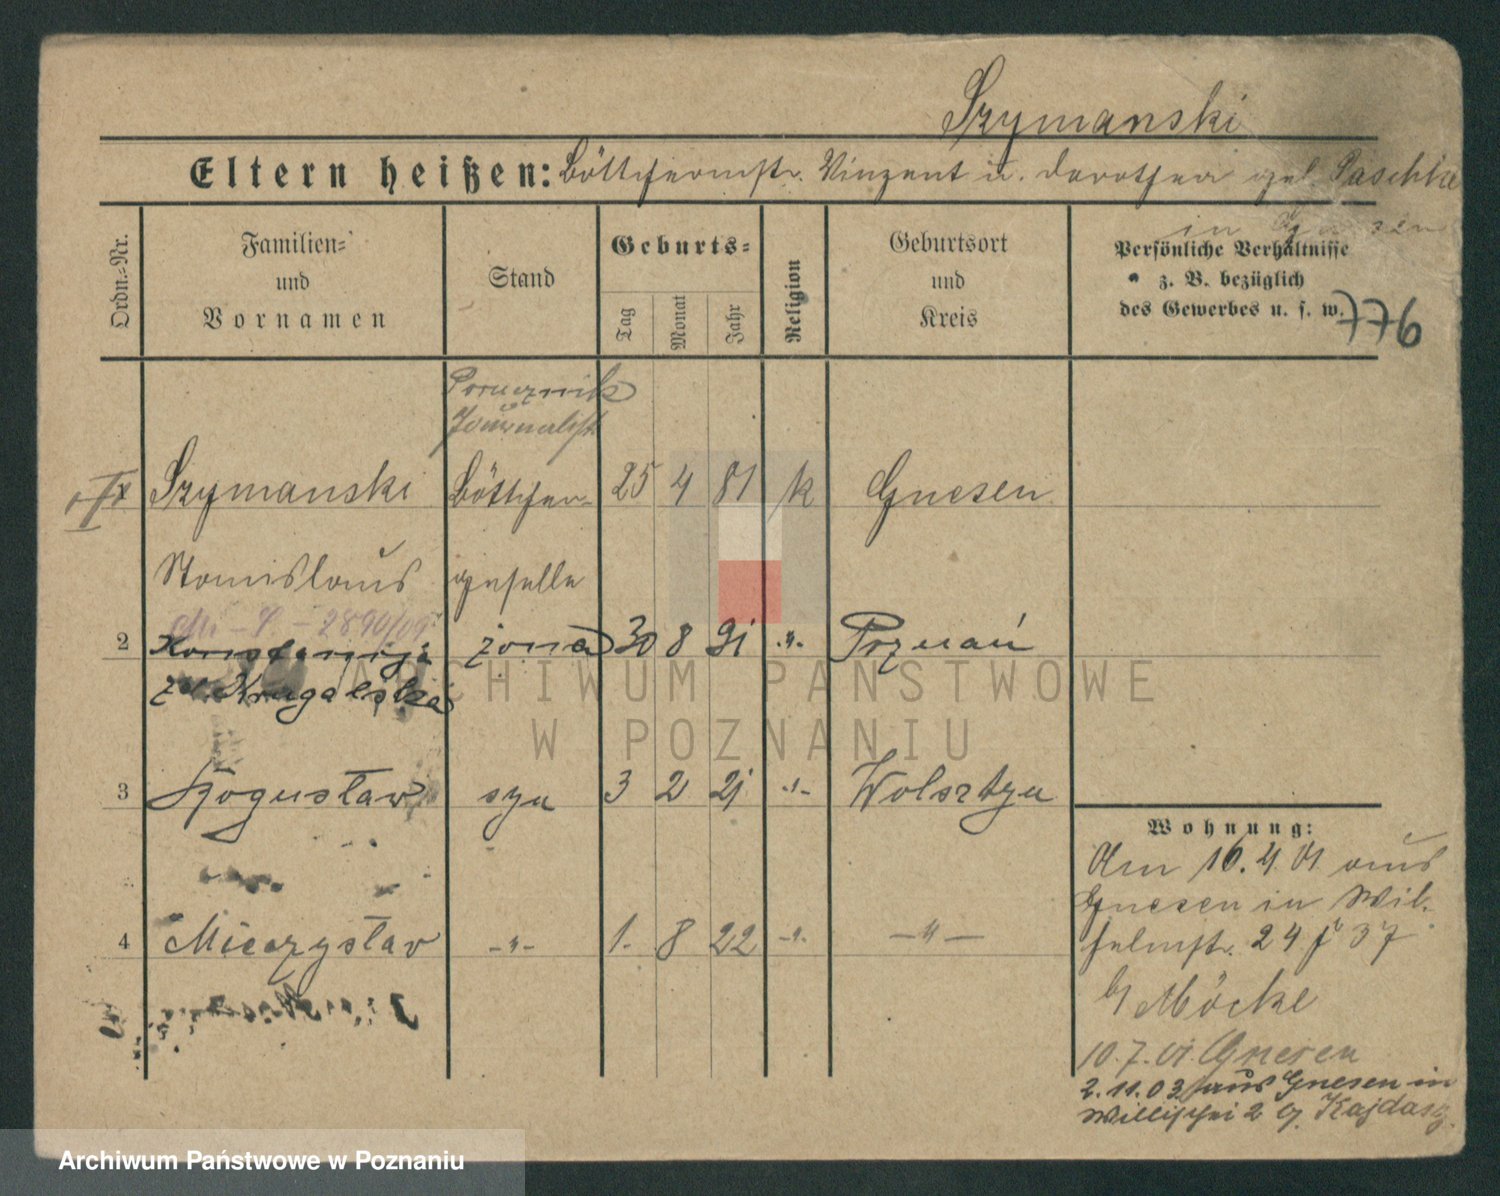 Szymanski
Eltern heißen: Böttchermstr. Vinzent u. Dorothea geb. Paschke
in Gnesen
Ordn.-Nr.
Familien-
und
Vornamen
Stand
Geburts-
Tag
Monat
Jahr
Religion
Geburtsort
und
Kreis
Persönliche Verhältnisse
z. B. bezüglich
des Gewerbes u. s. w.
776
Porucznik
Journalist
Szymanski Böttcher- 25 4 81 k Gnesen
Stanislaus geselle
2890/09
2 Konstancja żona 30 8 91 -"- Poznań
z d. Krugalska
3 Bogusław syn 3 2 21 -"- Wolsztyn
4 Mieczysław -"- 1. 8 22 -"- -"-
Wohnung:
Am 16.4.01 aus
Gnesen in Wil-
helmstr. 24
b/ Möcke
10.7.01. Gnesen
2.11.03 aus Gnesen in
2 Kajdasz
ARCHIWUM PAŃSTWOWE
W POZNANIU
Archiwum Państwowe w Poznaniu